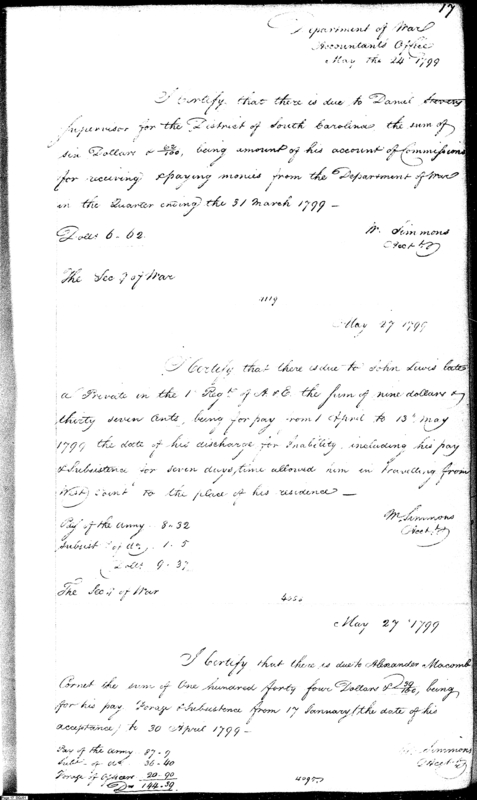 17
Department of War
Accountants Office
May the 24th 1799
I Certify that there is due to Daniel Stevens
Supervisor for the District of South Carolina the sum of
six Dollars & 62/100, being amount of his account of Commissions
for receiving & paying monies from the Department of War
in the Quarter ending the 31 March 1799 —
Dolls 6-62
Wm Simmons
Acctt
The Secy of War
May 27 1799
I Certify that there is due to John Lewis late
a Private in the 1st Regt of A & E the sum of nine dollars &
thirty seven Cents, being for pay from 1 April to 13th May
1799 the date of his discharge for Inability, including his pay
& Subsistence for seven days, time allowed him in travelling from
West Point to the place of his residence —
Pay of the Army 8-32
Subsist. of do. 1-5
Dolls 9-37
Wm Simmons
Acctt
The Secy of War
May 27 1799
I Certify that there is due to Alexander Macomb
Cornet the sum of One hundred forty four Dollars & 39/100, being
for his pay Forage & Subsistence from 17 January (the date of his
acceptance) to 30 April 1799 —
Pay of the Army 87-9
Subs. of do. 36-40
Forage of Officers 20-90
Ds 144-39
Simmons
Acctt